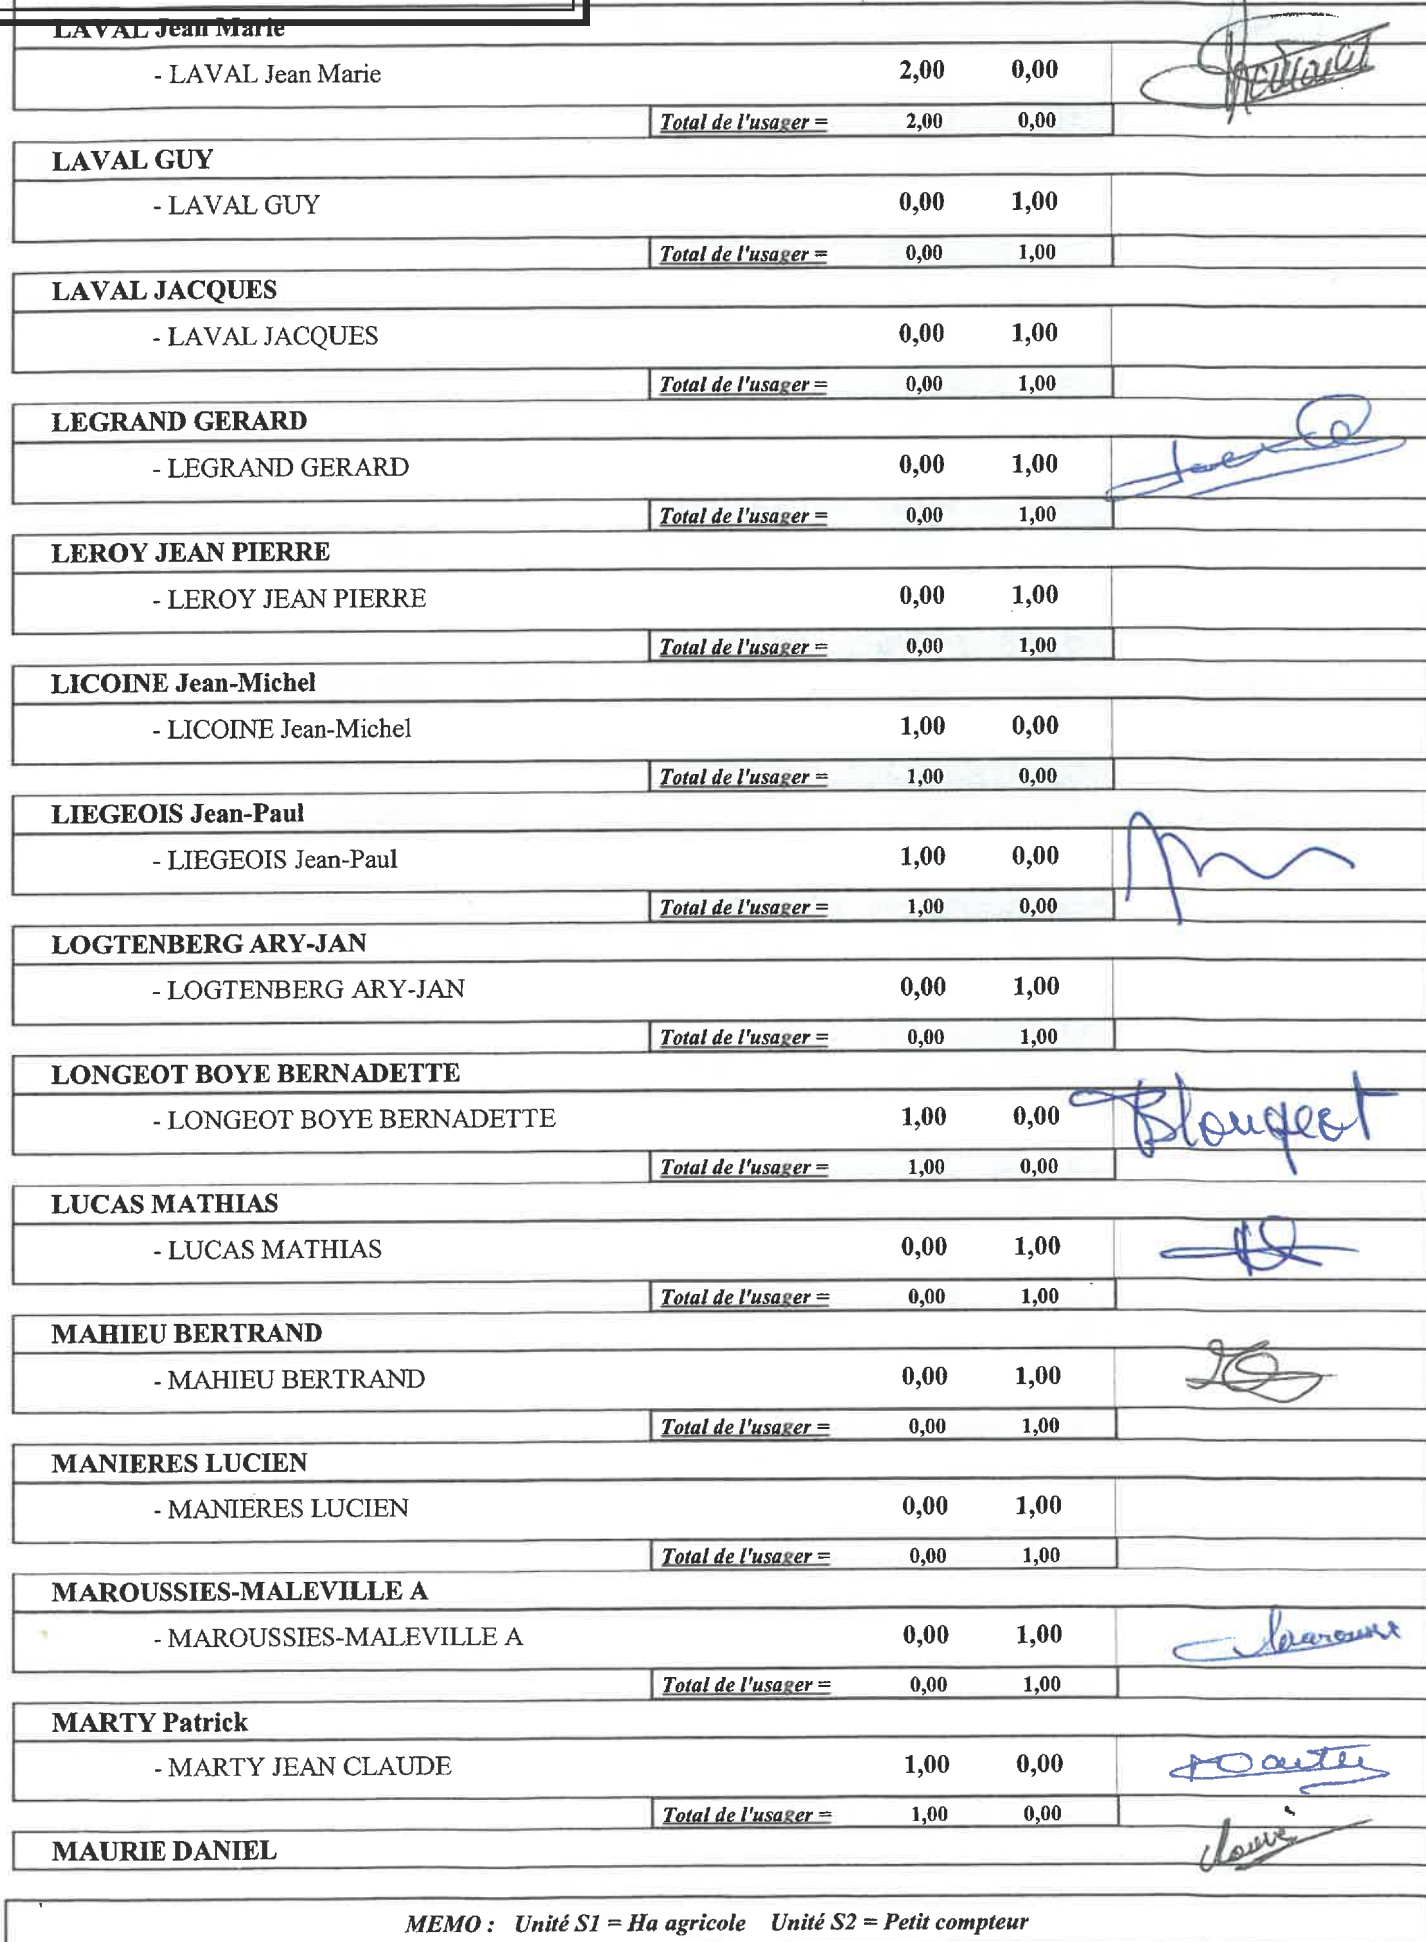 LAVAL Jean Marie
- LAVAL Jean Marie 2,00 0,00
Total de l'usager = 2,00 0,00
LAVAL GUY
- LAVAL GUY 0,00 1,00
Total de l'usager = 0,00 1,00
LAVAL JACQUES
- LAVAL JACQUES 0,00 1,00
Total de l'usager = 0,00 1,00
LEGRAND GERARD
- LEGRAND GERARD 0,00 1,00
Total de l'usager = 0,00 1,00
LEROY JEAN PIERRE
- LEROY JEAN PIERRE 0,00 1,00
Total de l'usager = 0,00 1,00
LICOINE Jean-Michel
- LICOINE Jean-Michel 1,00 0,00
Total de l'usager = 1,00 0,00
LIEGEOIS Jean-Paul
- LIEGEOIS Jean-Paul 1,00 0,00
Total de l'usager = 1,00 0,00
LOGTENBERG ARY-JAN
- LOGTENBERG ARY-JAN 0,00 1,00
Total de l'usager = 0,00 1,00
LONGEOT BOYE BERNADETTE
- LONGEOT BOYE BERNADETTE 1,00 0,00 Blongeot
Total de l'usager = 1,00 0,00
LUCAS MATHIAS
- LUCAS MATHIAS 0,00 1,00
Total de l'usager = 0,00 1,00
MAHIEU BERTRAND
- MAHIEU BERTRAND 0,00 1,00
Total de l'usager = 0,00 1,00
MANIERES LUCIEN
- MANIERES LUCIEN 0,00 1,00
Total de l'usager = 0,00 1,00
MAROUSSIES-MALEVILLE A
- MAROUSSIES-MALEVILLE A 0,00 1,00
Total de l'usager = 0,00 1,00
MARTY Patrick
- MARTY JEAN CLAUDE 1,00 0,00
Total de l'usager = 1,00 0,00
MAURIE DANIEL
MEMO : Unité S1 = Ha agricole Unité S2 = Petit compteur